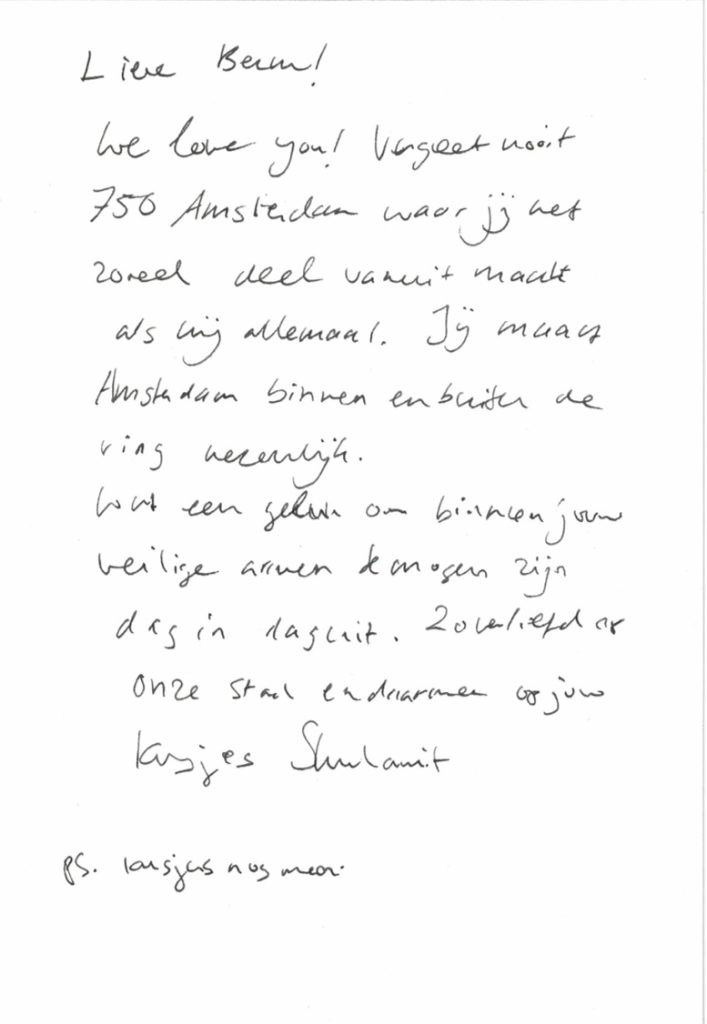 Lieve Bern!
We love you! Vergeet nooit
750 Amsterdam waar jij net
zoveel deel vanuit maakt
als wij allemaal. Jij maakt
Amsterdam binnen en buiten de
ring wezenlijk.
Wat een geluk om binnen jouw
veilige armen te mogen zijn
dag in dag uit. Zo verliefd op
onze stad en daarmee op jouw
kusjes Shulamit
ps. kusjes nog meer.